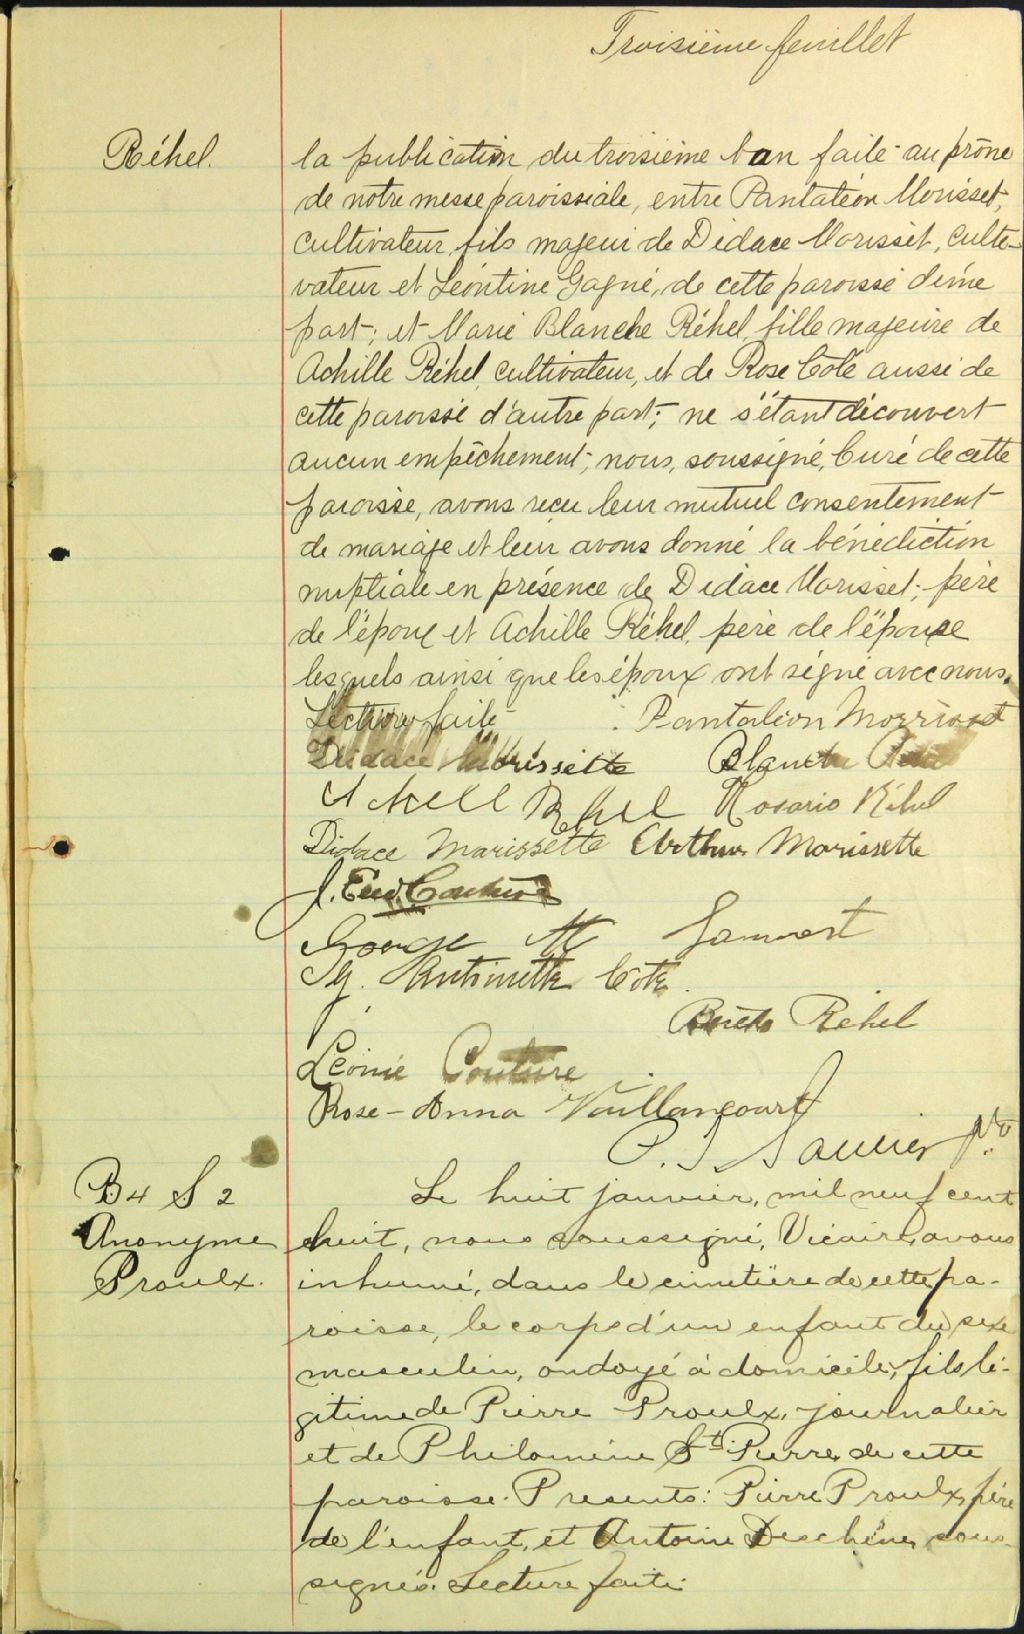 Troisième feuillet
Réhel.
la publication du troisième ban faite au prône
de notre messe paroissiale, entre Pantaléon Morisset,
cultivateur, fils majeur de Didace Morisset, culti-
vateur et Léontine Gagné, de cette paroisse d'une
part; et Marie Blanche Réhel, fille majeure de
Achille Réhel, cultivateur, et de Rose Côté aussi de
cette paroisse d'autre part; ne s'étant découvert
aucun empêchement, nous, soussigné, Curé de cette
paroisse, avons reçu leur mutuel consentement
de mariage et leur avons donné la bénédiction
nuptiale en présence de Didace Morisset, père
de l'époux et Achille Réhel, père de l'épouse
lesquels ainsi que les époux ont signé avec nous.
Lecture faite
Pantalion Morrisset
Didace Morissette Blanche
Achell Rehel Rosario Réhel
Didace Marissette Arthur Morissette
J. Eud. Couture
George M
M. Antoinette Côté
Réhel
Léonie Couture
Rose-Anna Vaillancourt
P. J. Saucier Ptre
B4 S2
Anonyme
Proulx.
Le huit janvier, mil neuf cent
huit, nous soussigné, Vicaire, avons
inhumé, dans le cimetière de cette pa-
roisse, le corps d'un enfant du sexe
masculin, ondoyé à domicile, fils lé-
gitime de Pierre Proulx, journalier
et de Philomène St. Pierre, de cette
paroisse. Presents: Pierre Proulx, père
de l'enfant, et Antoine Deschênes sous-
signés. Lecture faite.